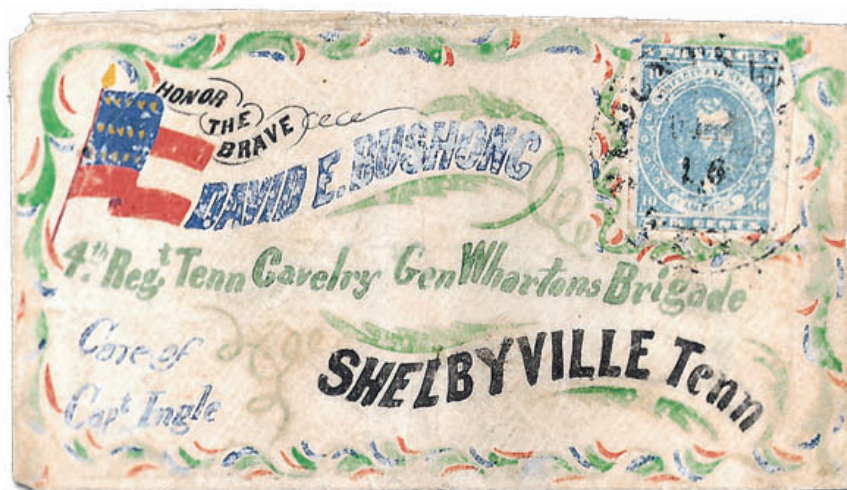 HONOR
THE
BRAVE
DAVID E. BUSHONG
4th Regt Tenn Cavelry Gen Whartons Brigade
Care of
Capt Ingle
SHELBYVILLE Tenn
10
10
10
10